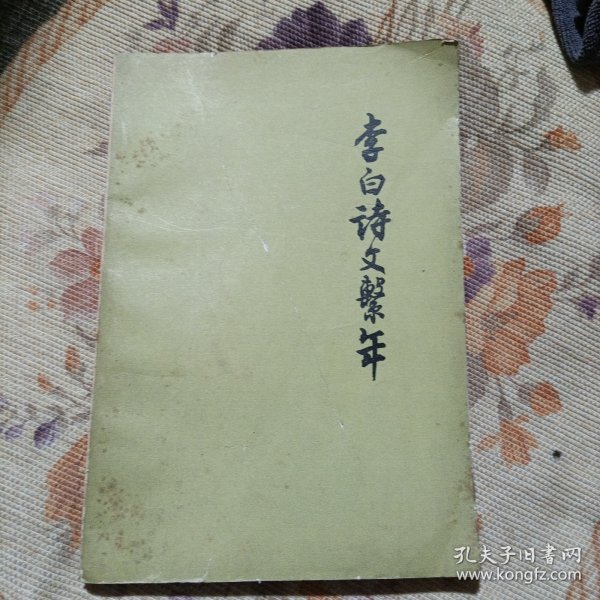 李白詩文繫年
孔夫子旧書网
www.kongfz.com